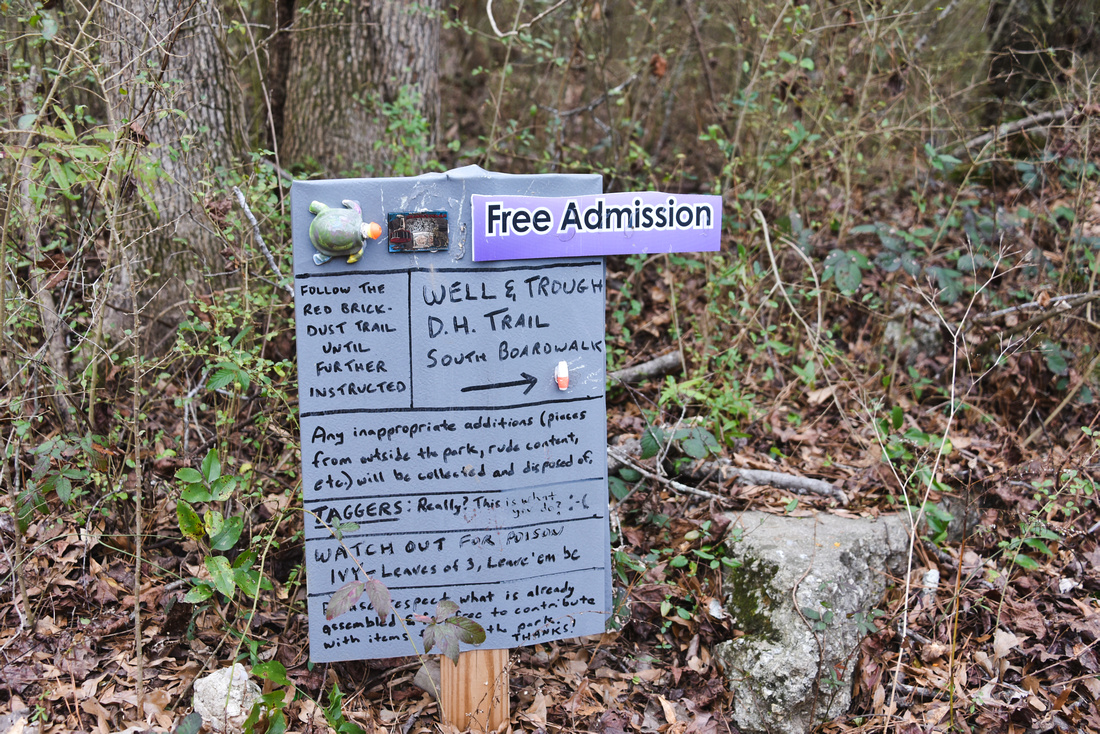 Free Admission
FOLLOW THE
RED BRICK-
DUST TRAIL
UNTIL
FURTHER
INSTRUCTED
WELL & TROUGH
D.H. TRAIL
SOUTH BOARDWALK
Any inappropriate additions (pieces
from outside the park, rude content,
etc) will be collected and disposed of.
TAGGERS: Really? This is what
you do? :-(
WATCH OUT FOR POISON
IVY- Leaves of 3, Leave 'em be
respect what is already
assembled to contribute
with items the park.
THANKS!